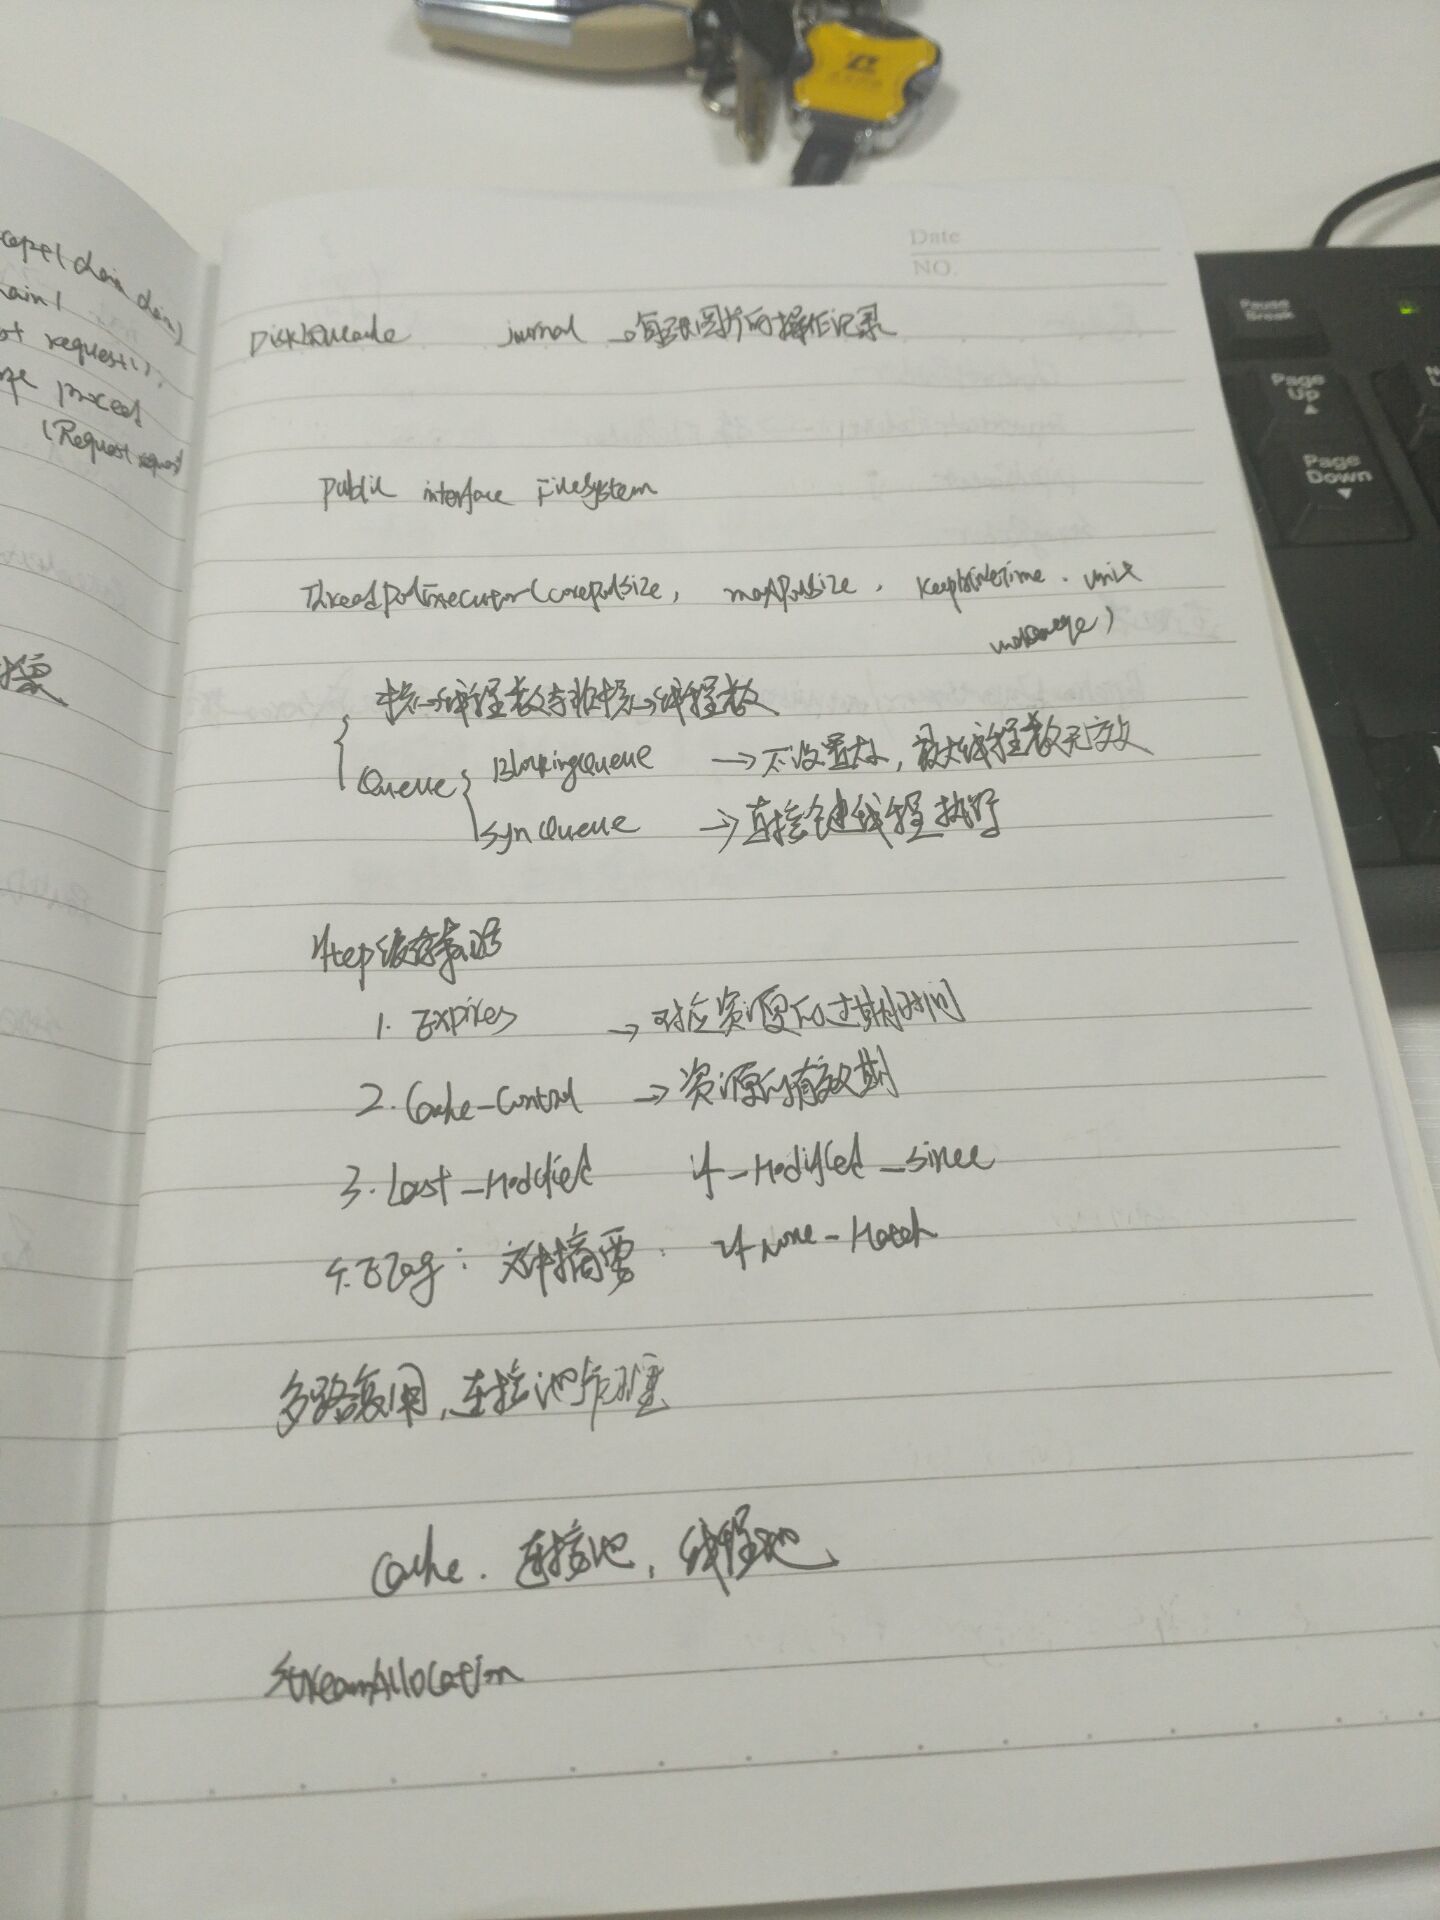 cept(chain chain)
chain(
st request();
nse proceed
(Request request)
接
Date
NO.
DiskLRUCache journal → 每张图片的操作记录
public interface FileSystem
ThreadPoolExecutor(corepoolsize, maxPoolsize, KeepAliveTime. unit
核心线程数与非核心线程数
Queue BlockingQueue → 不设置大小, 最大线程数无效
synQueue → 直接创建线程执行
Http缓存知识
1. Expires → 对应资源的过期时间
2. Cache-Control → 资源的有效期
3. Last-Modified if-Modified-since
4. ETag: 文件摘要. if None-Match
多路复用, 连接池原理
Cache. 连接池, 线程池
StreamAllocation
Pause
Break
Page
Up
Page
Down